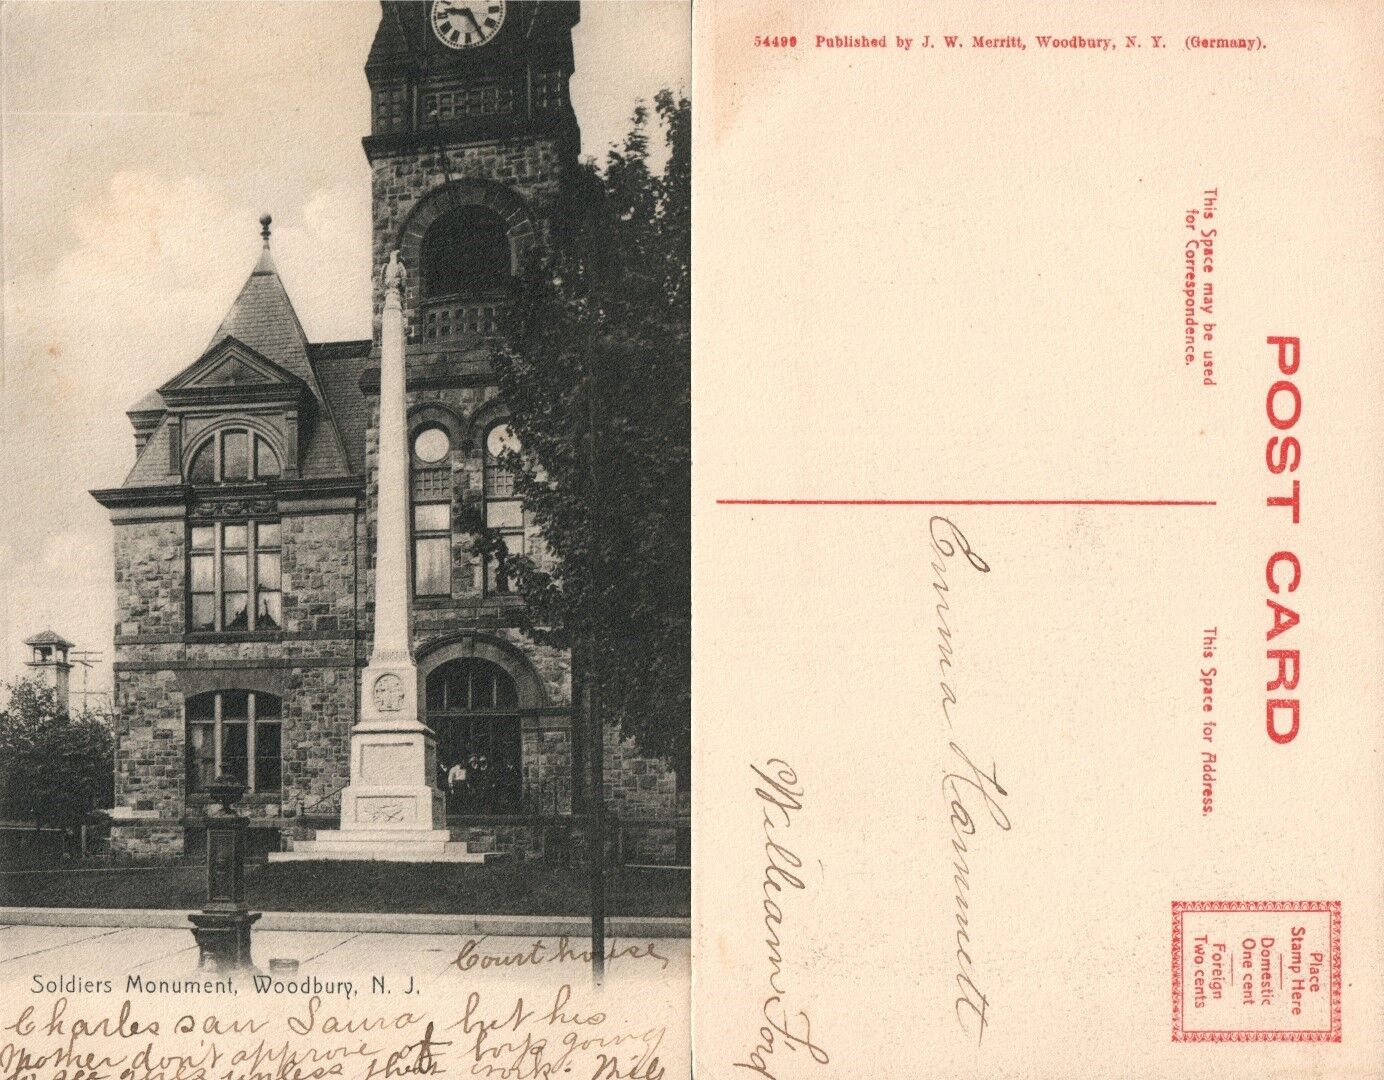 Courthouse,
Soldiers Monument, Woodbury, N. J.
Charles saw Laura, but his
Mother don't approve of boys going
to see girls unless they work.
54490 Published by J. W. Merritt, Woodbury, N. Y. (Germany).
POST CARD
This Space may be used
for Correspondence.
This Space for Address.
Place
Stamp Here
Domestic
One cent
Foreign
Two cents
Emma Hammett
William